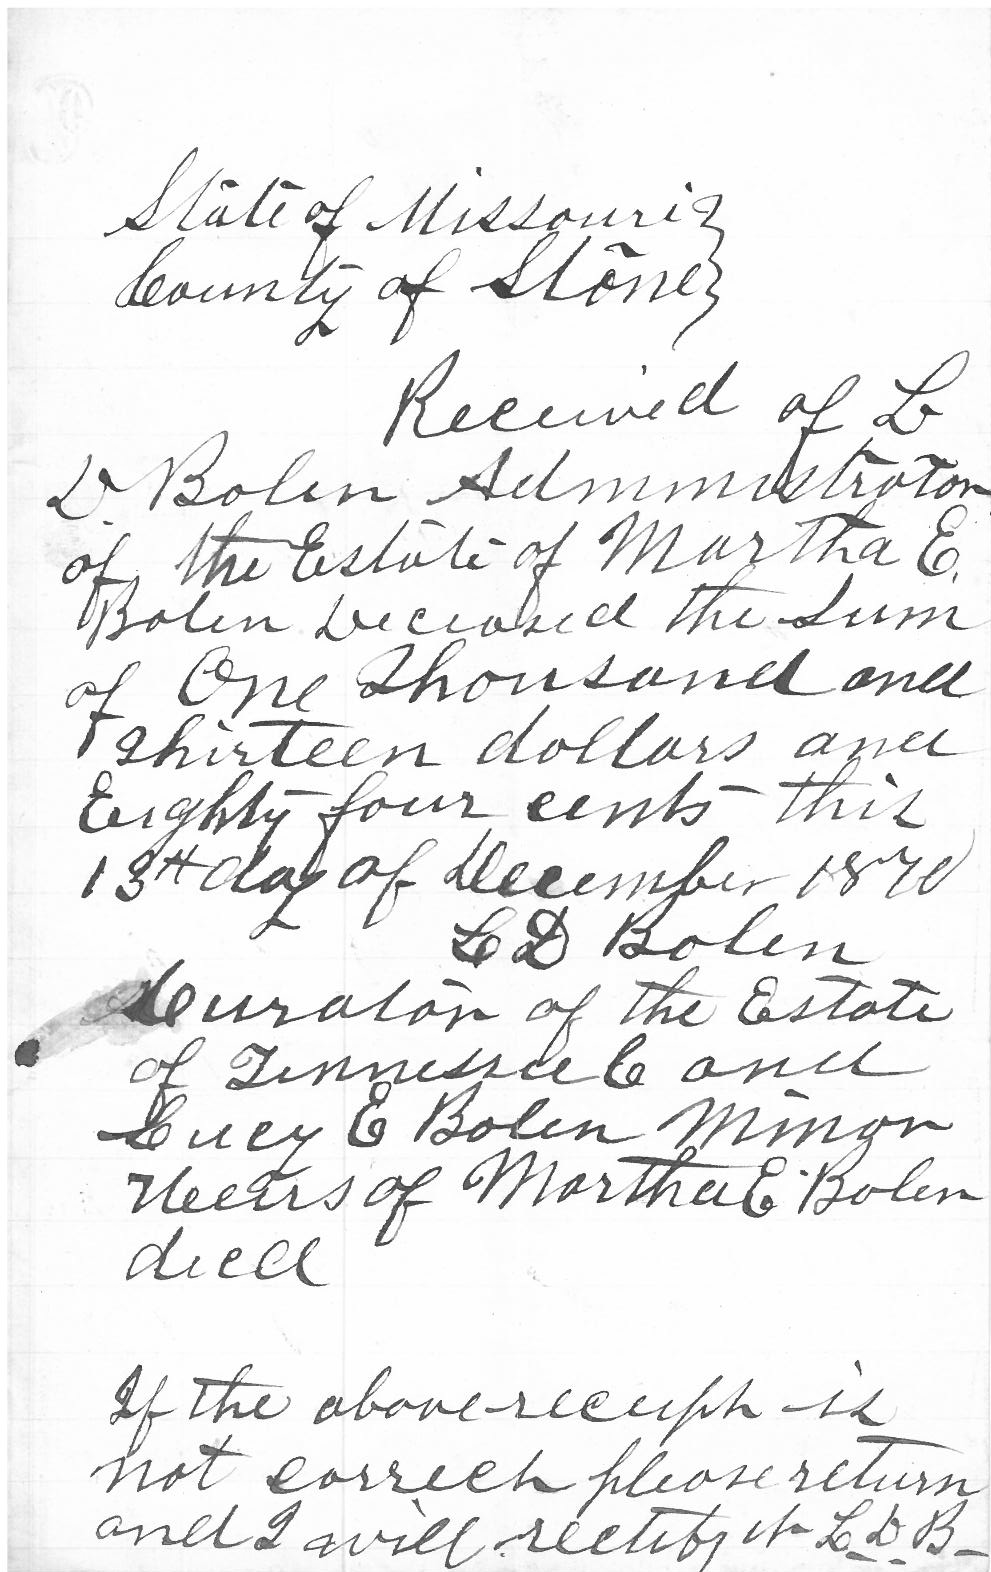 State of Missouri }
County of Stone }
Received of L
D. Bolen Administrator
of the Estate of Martha E.
Bolen Deceased the Sum
of One Thousand and
Thirteen dollars and
Eighty four cents this
13th day of December 1870
L D Bolen
Curator of the Estate
of Tennessee C and
Lucy E Bolen Minor
Heirs of Martha E. Bolen
decd
If the above receipt is
not correct please return
and I will rectify it L. D. B-